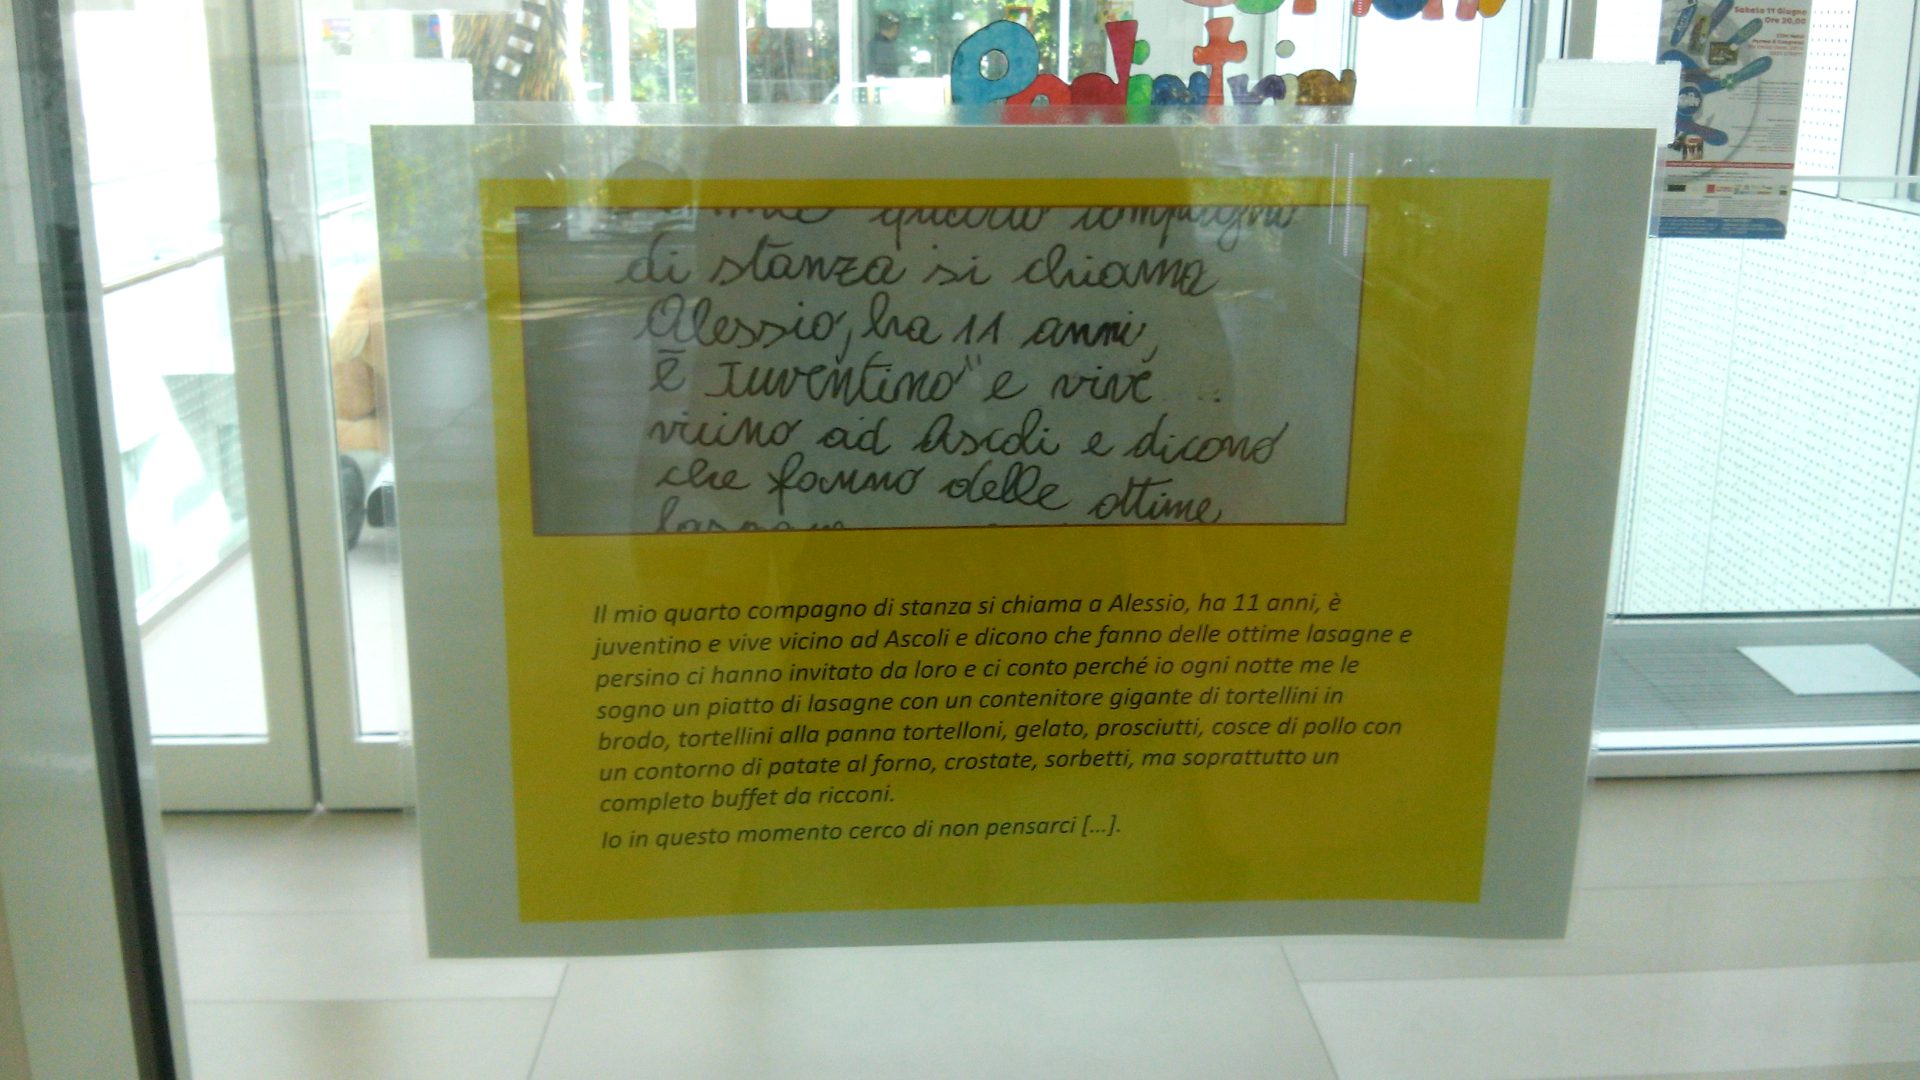 Pediatria
Sabato 11 Giugno
Ore 20,00
quarto compagno
di stanza si chiama
Alessio, ha 11 anni,
è Juventino" e vive
vicino ad Ascoli e dicono
che fanno delle ottime
Il mio quarto compagno di stanza si chiama a Alessio, ha 11 anni, è
juventino e vive vicino ad Ascoli e dicono che fanno delle ottime lasagne e
persino ci hanno invitato da loro e ci conto perché io ogni notte me le
sogno un piatto di lasagne con un contenitore gigante di tortellini in
brodo, tortellini alla panna tortelloni, gelato, prosciutti, cosce di pollo con
un contorno di patate al forno, crostate, sorbetti, ma soprattutto un
completo buffet da ricconi.
Io in questo momento cerco di non pensarci [...].